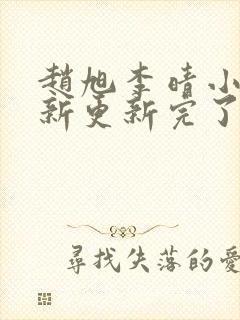 趙旭李晴小
新更新完了
尋找失落的愛